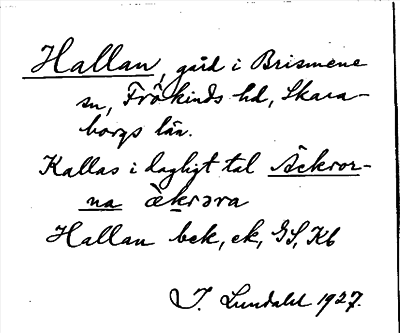 Hallan, gård i Brismene
sn, Frökinds hd, Skara-
borgs län.
Kallas i dagligt tal Åckror-
na àkrəra
Hallan bek, ek, GS, Kb
I. Lundahl 1927.